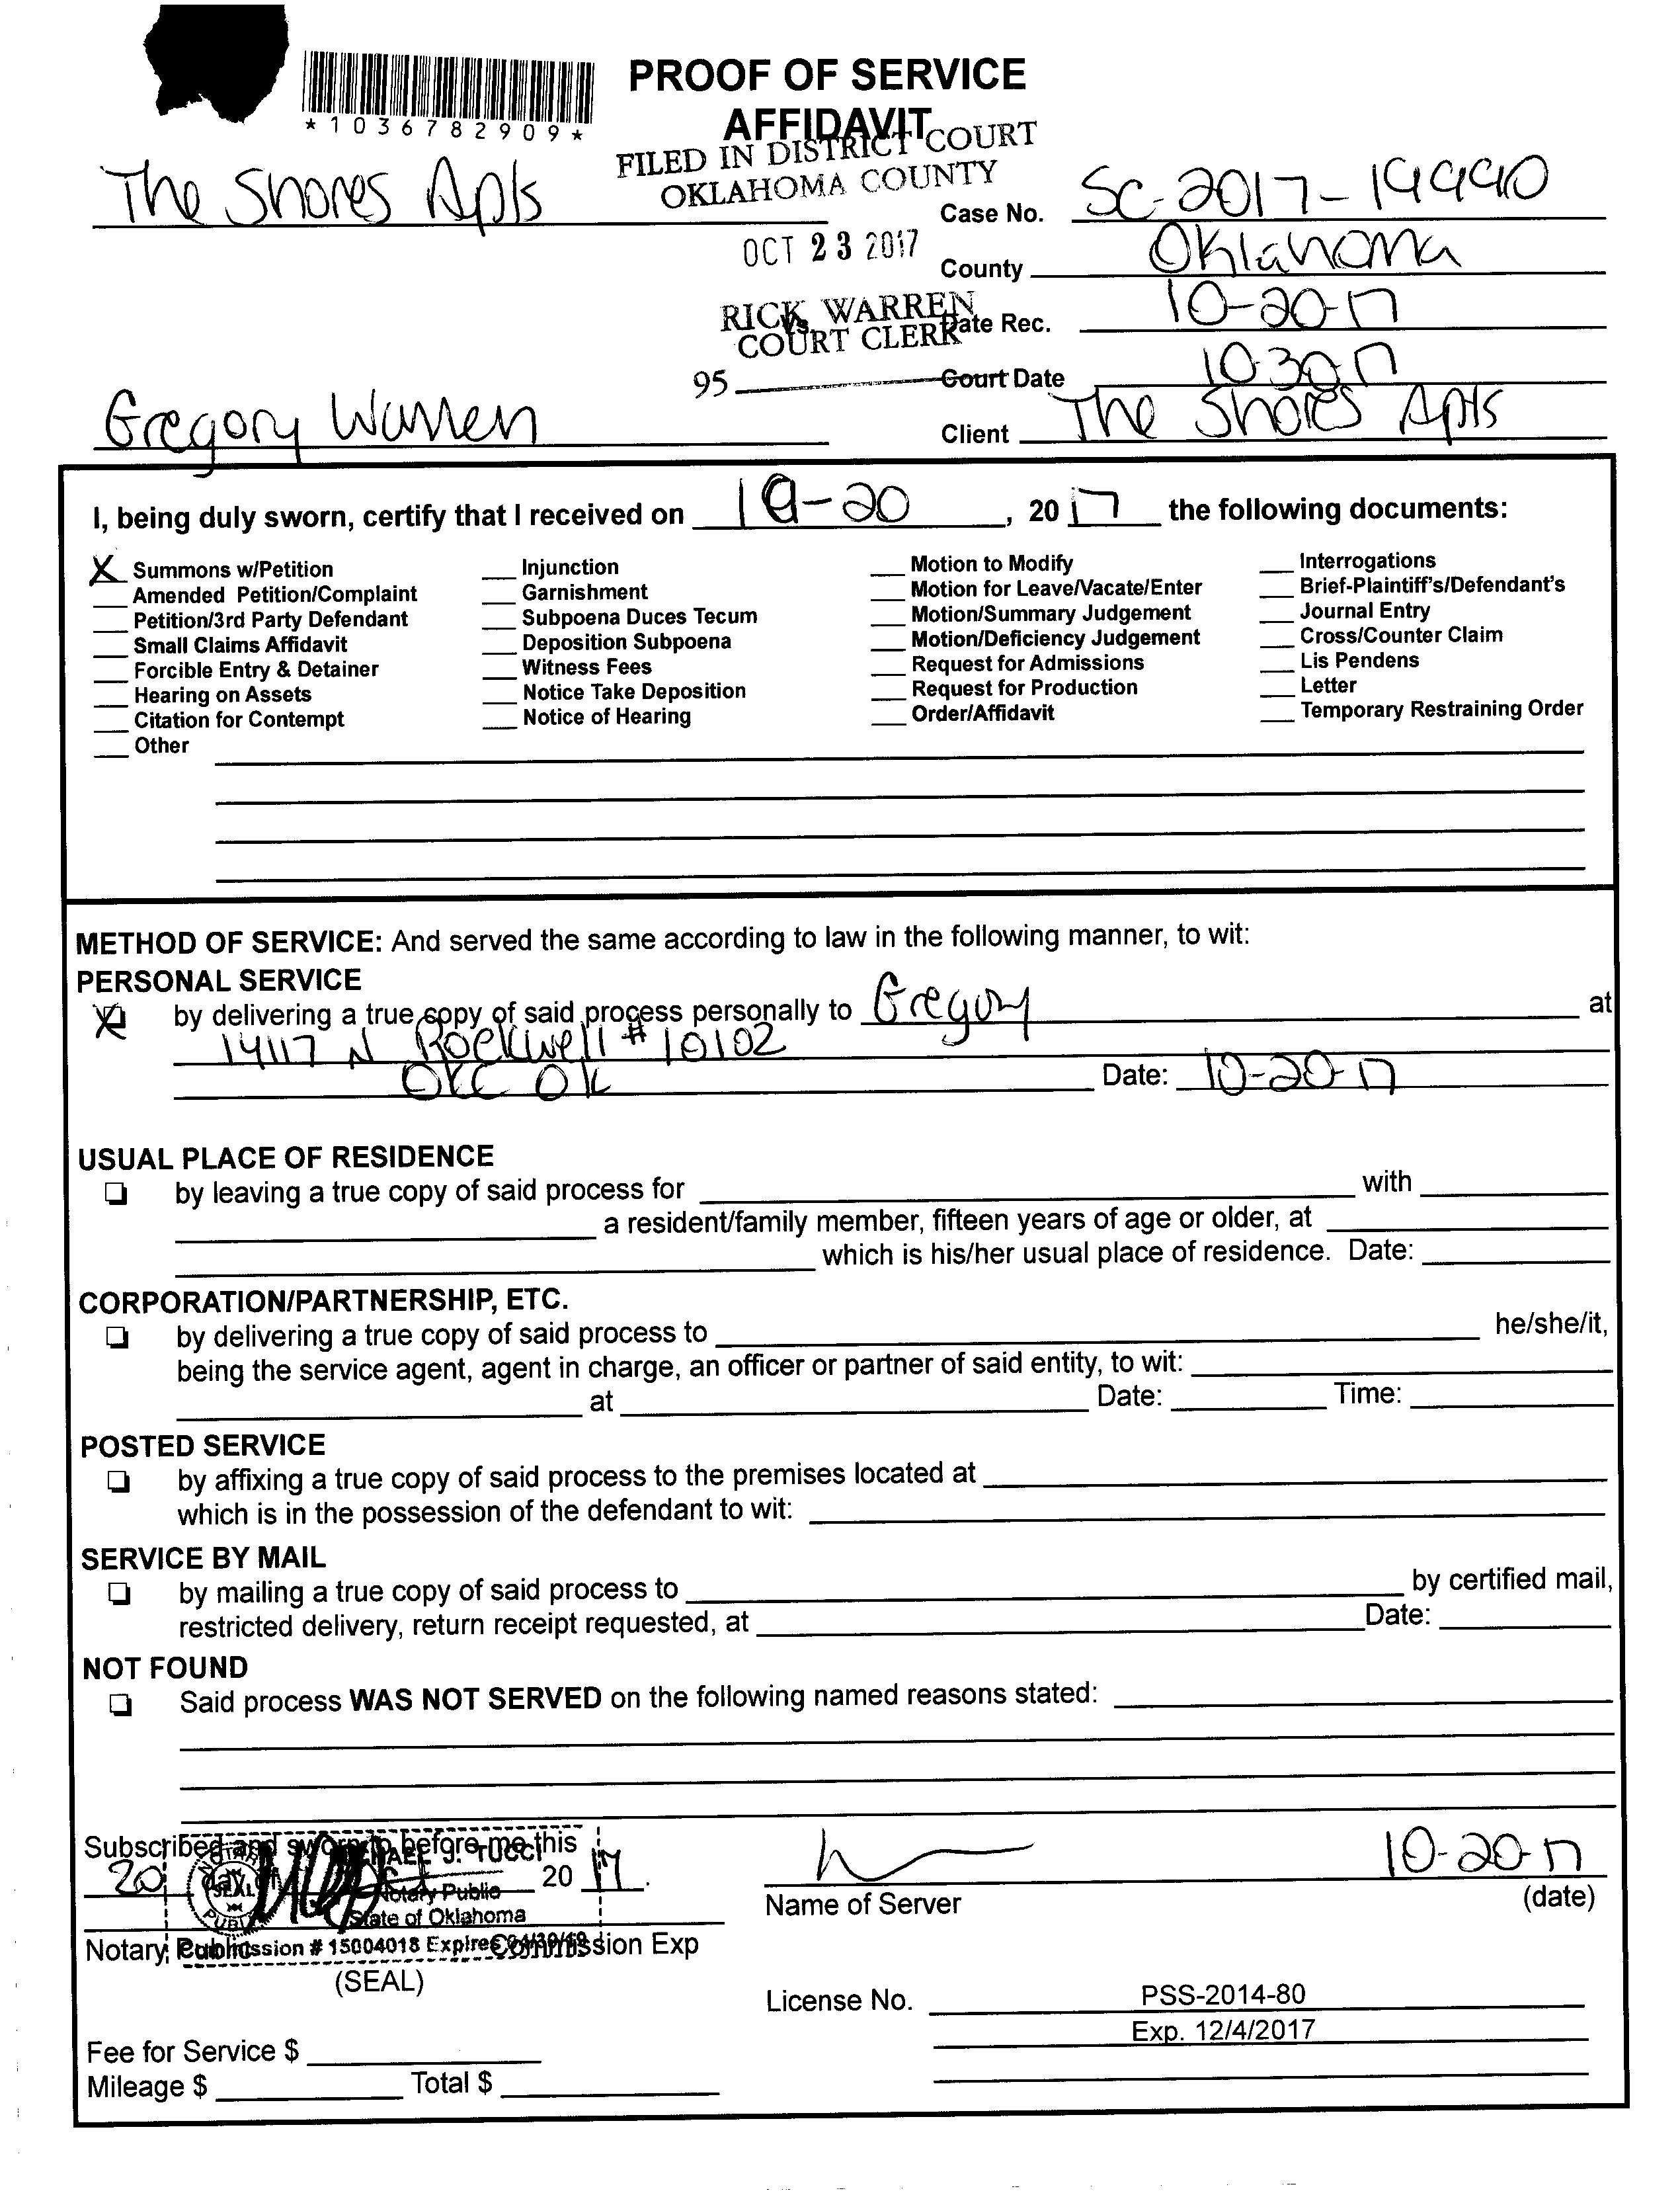 PROOF OF SERVICE
AFFIDAVIT
*1036782909*
FILED IN DISTRICT COURT
OKLAHOMA COUNTY
The Shores Apts
Case No. SC-2017-19990
OCT 23 2017
County Oklahoma
RICK WARREN
COURT CLERK
vs.
Date Rec. 10-20-17
95
Court Date 10-30-17
Gregory Warren
Client The Shores Apts
I, being duly sworn, certify that I received on 10-20, 20 17 the following documents:
X Summons w/Petition
Amended Petition/Complaint
Petition/3rd Party Defendant
Small Claims Affidavit
Forcible Entry & Detainer
Hearing on Assets
Citation for Contempt
Other
Injunction
Garnishment
Subpoena Duces Tecum
Deposition Subpoena
Witness Fees
Notice Take Deposition
Notice of Hearing
Motion to Modify
Motion for Leave/Vacate/Enter
Motion/Summary Judgement
Motion/Deficiency Judgement
Request for Admissions
Request for Production
Order/Affidavit
Interrogations
Brief-Plaintiff's/Defendant's
Journal Entry
Cross/Counter Claim
Lis Pendens
Letter
Temporary Restraining Order
METHOD OF SERVICE: And served the same according to law in the following manner, to wit:
PERSONAL SERVICE
X by delivering a true copy of said process personally to Gregory at
14117 N Rockwell # 10102
OKC OK Date: 10-20-17
USUAL PLACE OF RESIDENCE
by leaving a true copy of said process for with
a resident/family member, fifteen years of age or older, at
which is his/her usual place of residence. Date:
CORPORATION/PARTNERSHIP, ETC.
by delivering a true copy of said process to he/she/it,
being the service agent, agent in charge, an officer or partner of said entity, to wit:
at Date: Time:
POSTED SERVICE
by affixing a true copy of said process to the premises located at
which is in the possession of the defendant to wit:
SERVICE BY MAIL
by mailing a true copy of said process to by certified mail,
restricted delivery, return receipt requested, at Date:
NOT FOUND
Said process WAS NOT SERVED on the following named reasons stated:
Subscribed and sworn to before me this
20 day of 20 17.
J. TUCCI
Notary Public
State of Oklahoma
SEAL
Commission # 15004018 Expires 04/30/19
Notary Public Commission Exp
(SEAL)
10-20-17
Name of Server (date)
License No. PSS-2014-80
Exp. 12/4/2017
Fee for Service $
Mileage $ Total $